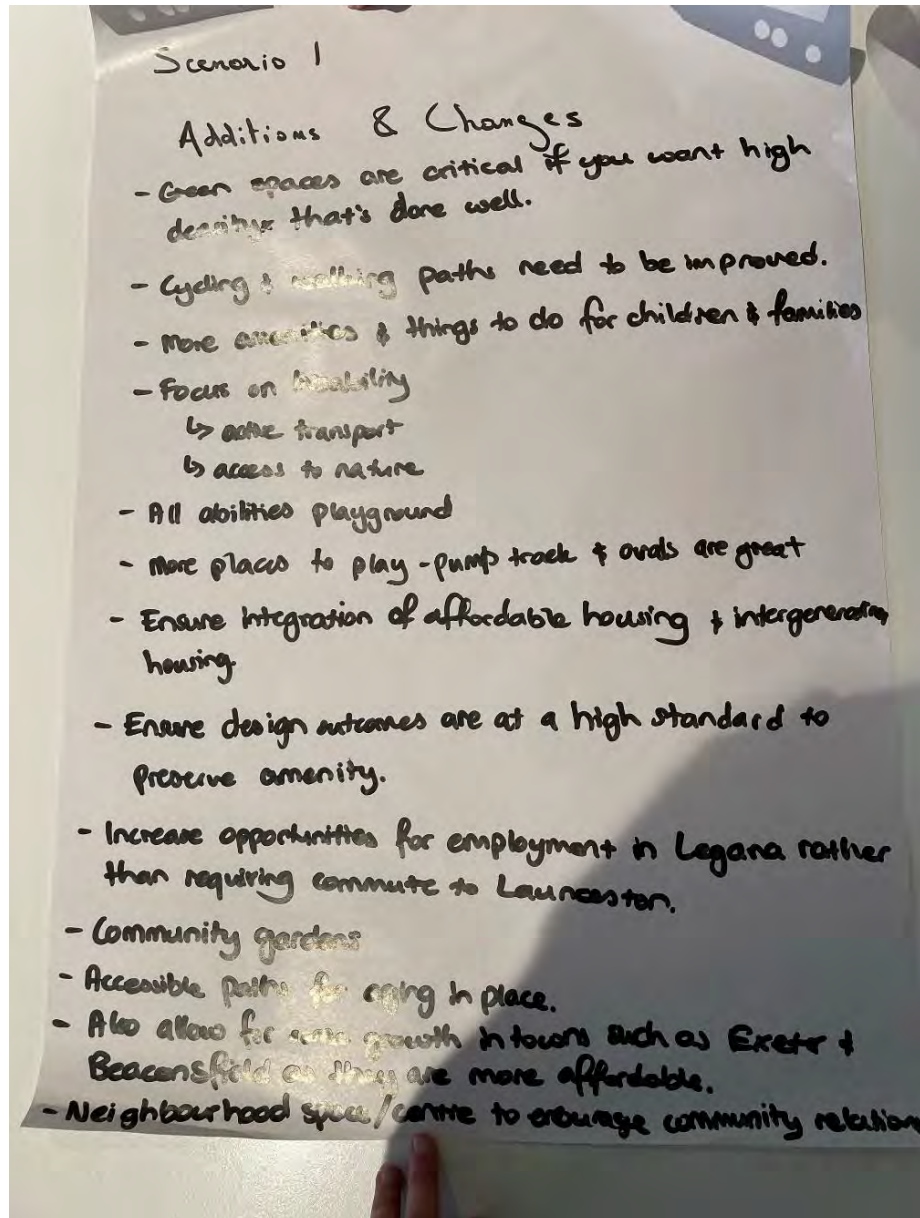 Scenario 1
Additions & Changes
- Green spaces are critical if you want high
density that's done well.
- Cycling & walking paths need to be improved.
- More amenities & things to do for children & families
- Focus on liveability
↳ active transport
↳ access to nature
- All abilities playground
- More places to play - pump track & ovals are great
- Ensure integration of affordable housing & intergenerational
housing.
- Ensure design outcomes are at a high standard to
preserve amenity.
- Increase opportunities for employment in Legana rather
than requiring commute to Launceston.
- Community gardens
- Accessible paths for aging in place.
- Also allow for some growth in towns such as Exeter &
Beaconsfield as they are more affordable.
- Neighbourhood space/centre to encourage community relation